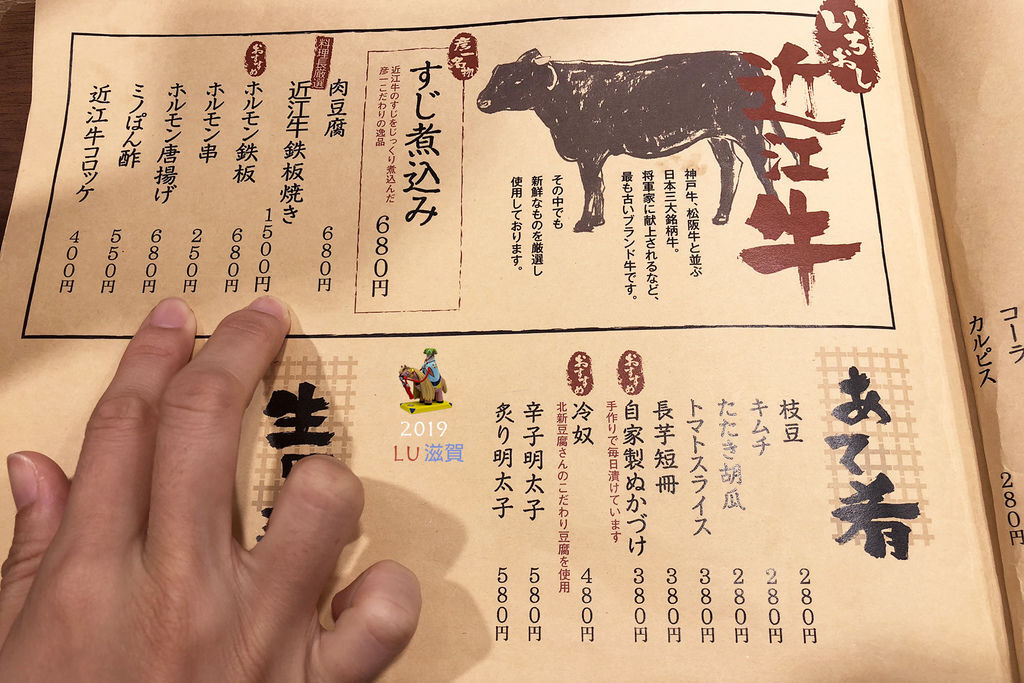 いちおし
近江牛
神戸牛、松阪牛と並ぶ
日本三大銘柄牛。
将軍家に献上されるなど、
最も古いブランド牛です。
その中でも
新鮮なものを厳選し
使用しております。
彦一名物
すじ煮込み 680円
近江牛のすじをじっくり煮込んだ
彦一こだわりの逸品
肉豆腐 680円
料理長厳選
近江牛鉄板焼き 1500円
おすすめ
ホルモン鉄板 680円
ホルモン串 250円
ホルモン唐揚げ 680円
ミノぽん酢 550円
近江牛コロッケ 400円
あて肴
枝豆 280円
キムチ 280円
たたき胡瓜 280円
トマトスライス 380円
長芋短冊 380円
おすすめ
自家製ぬかづけ 380円
手作りで毎日漬けています
おすすめ
冷奴 480円
北新豆腐さんのこだわり豆腐を使用
辛子明太子 580円
炙り明太子 580円
2019
LU 滋賀
生
コーラ
カルピス
280円